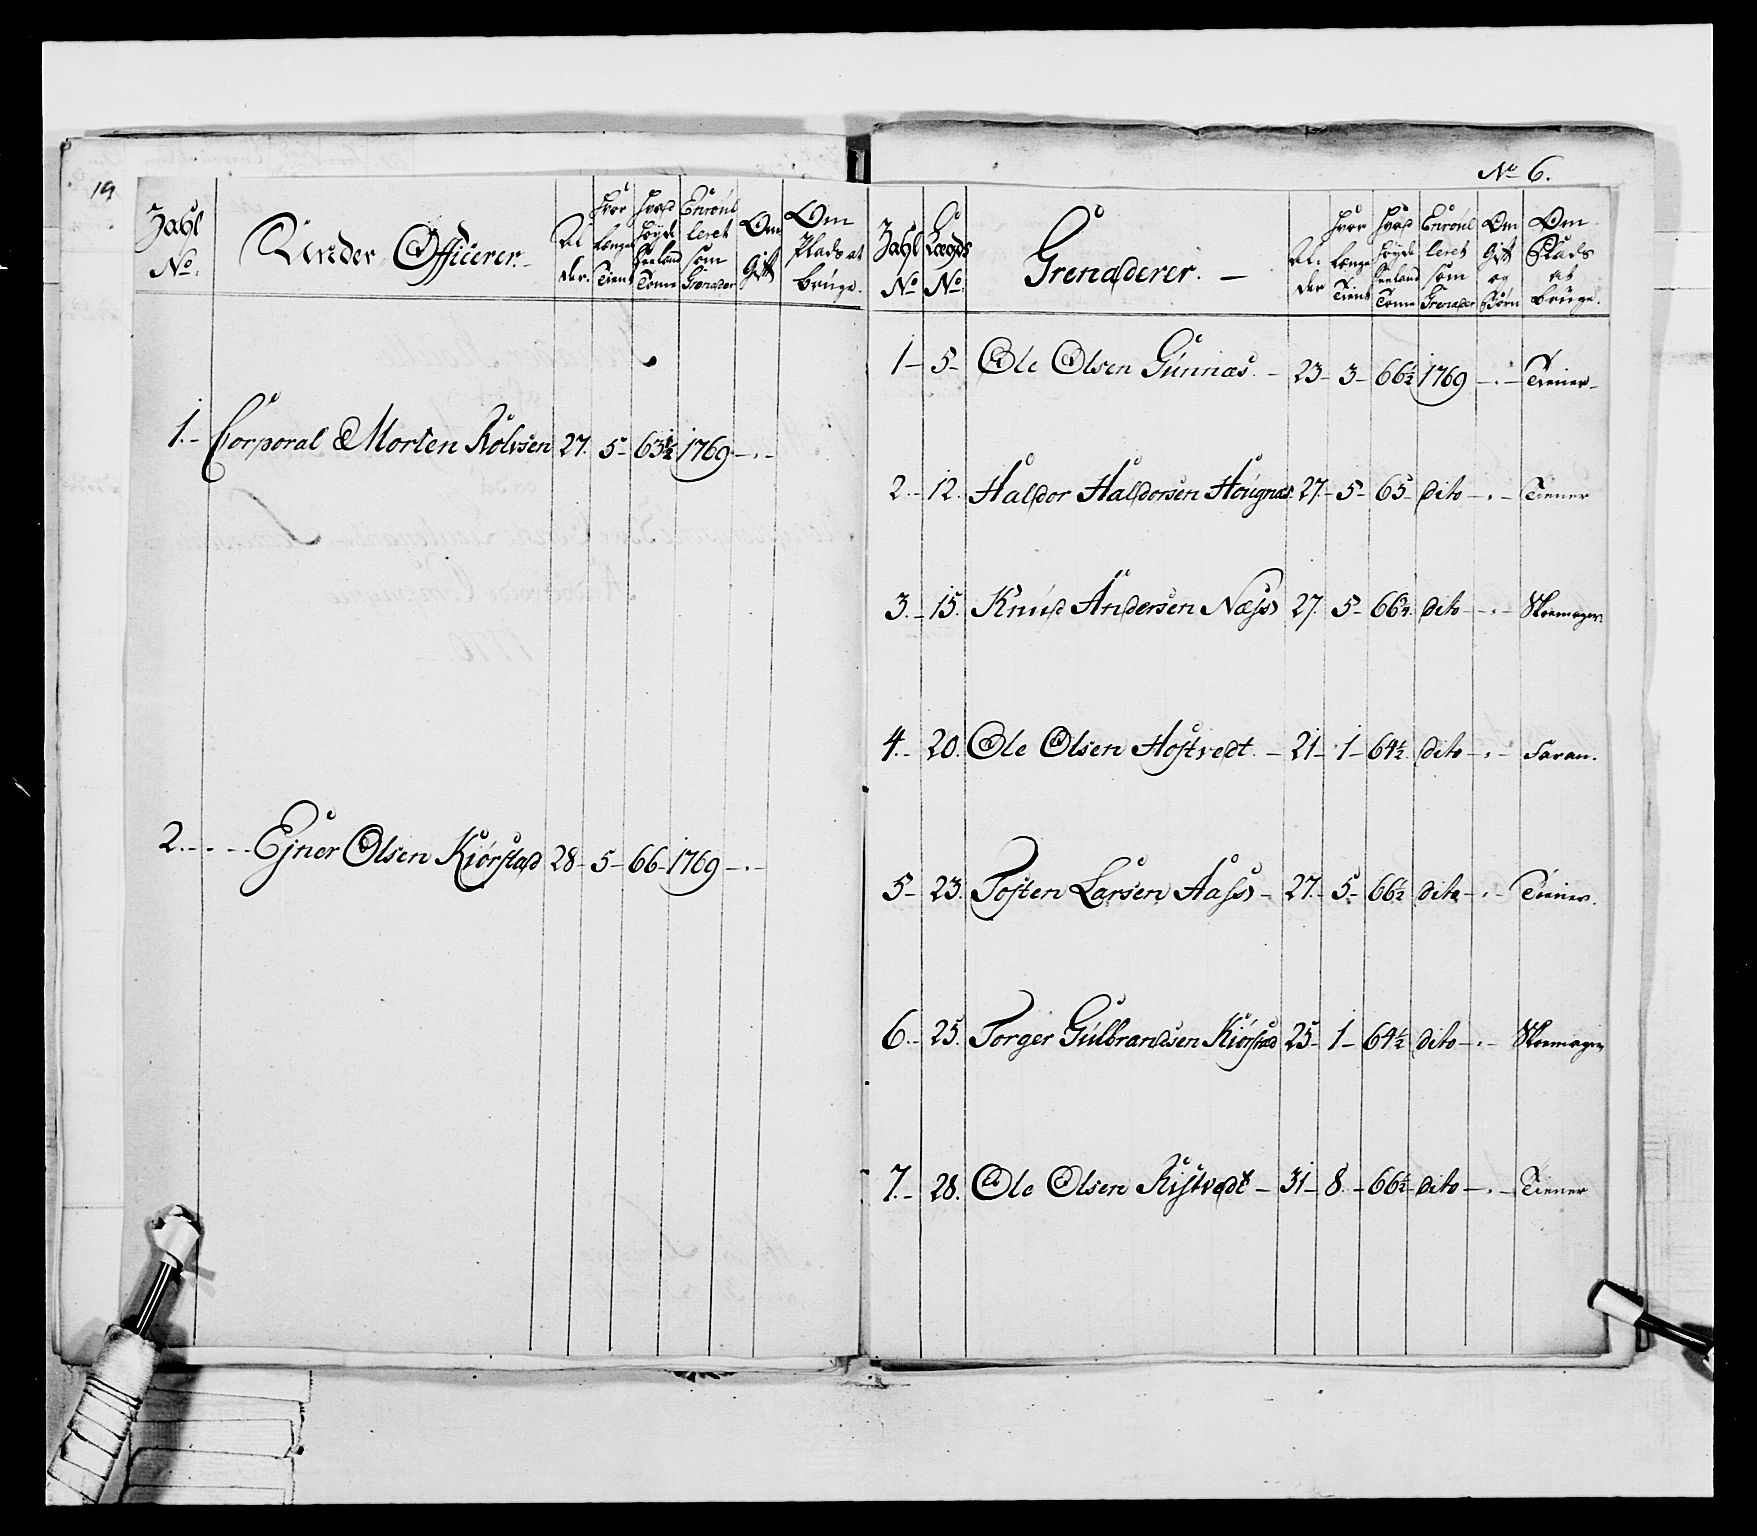 19
Zahl No. Under Officerer. Al der. Hvor Længe Tient Hvad Høyde Seeland Tome Enroul leret som Grenader Om Gift Om Plads at bruge.
1. Corporal Morten Rolvsen 27. 5 63½ 1769
2. Ejner Olsen Kiørstad 28 5 66 1769
No 6.
Zahl No Lægds No. Grenaderer. Al der Hvor Længe Tient Hvad Høyde Seeland Tome Enroul leret som Grenader Om Gift og Børn Om Plads at bruge.
1 5 Ole Olsen Gunnæs. 23 3 66½ 1769 Tiener
2. 12. Haldor Haldorsen Hougnæs 27. 5 65 dito Tiener
3. 15. Knud Andersen Næss 27. 5 dito Skoemager
4. 20. Ole Olsen Hostvedt. 21 1 64½ dito
5 23. Tosten Larsen Aass 27. 5 66½ dito Tiener.
6. 25. Torger Gulbrandsen Kiørstad 25 1 64½ dito Skoemager
7. 28. Ole Olsen Ristvedt 31 8. 66½ dito Tiener